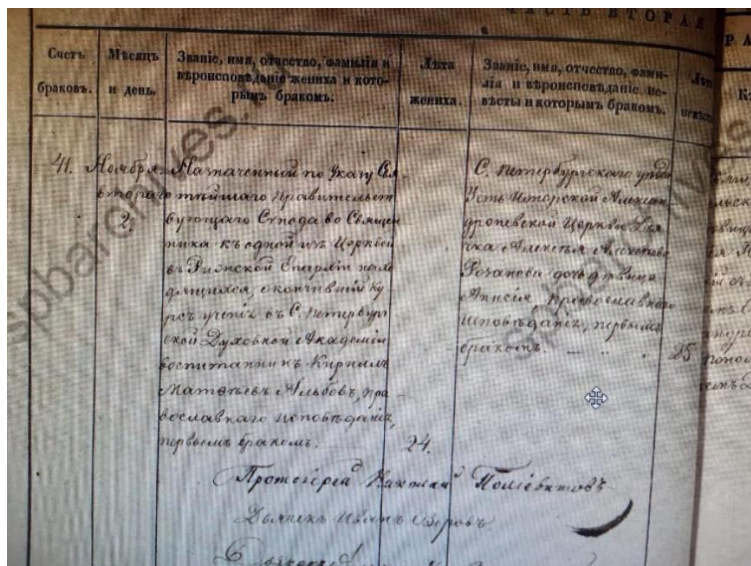 ЧАСТЬ ВТОРАЯ
Счетъ браковъ.
Мѣсяцъ и день.
Званіе, имя, отчество, фамилія и
вѣроисповѣданіе жениха и кото-
рымъ бракомъ.
Лѣта
жениха.
Званіе, имя, отчество, фами-
лія и вѣроисповѣданіе не-
вѣсты и которымъ бракомъ.
41.
Ноября
втораго
2.
Назначенный по Указу Свя
тѣйшаго Правительст
вующаго Сѵнода во Священ
ника къ одной изъ Церквей
въ Рижской Епархіи нахо
дящихся, окончившій Ку
рсъ ученія въ С. Петербург
ской Духовной Академіи
воспитанникъ Кириллъ
Матѳеевъ Альбовъ, пра
вославнаго исповѣданія,
первымъ бракомъ.
24.
С. Петербургскаго
Усть Ижорской Алексан
дроневской Церкви Дья
чка Алексѣя Алексѣева
Розанова дочь дѣвица
Анисія, православнаго
исповѣданія, первымъ
бракомъ.
25
Протоіерей Николай
Дьячекъ Иванъ
spbarchives.